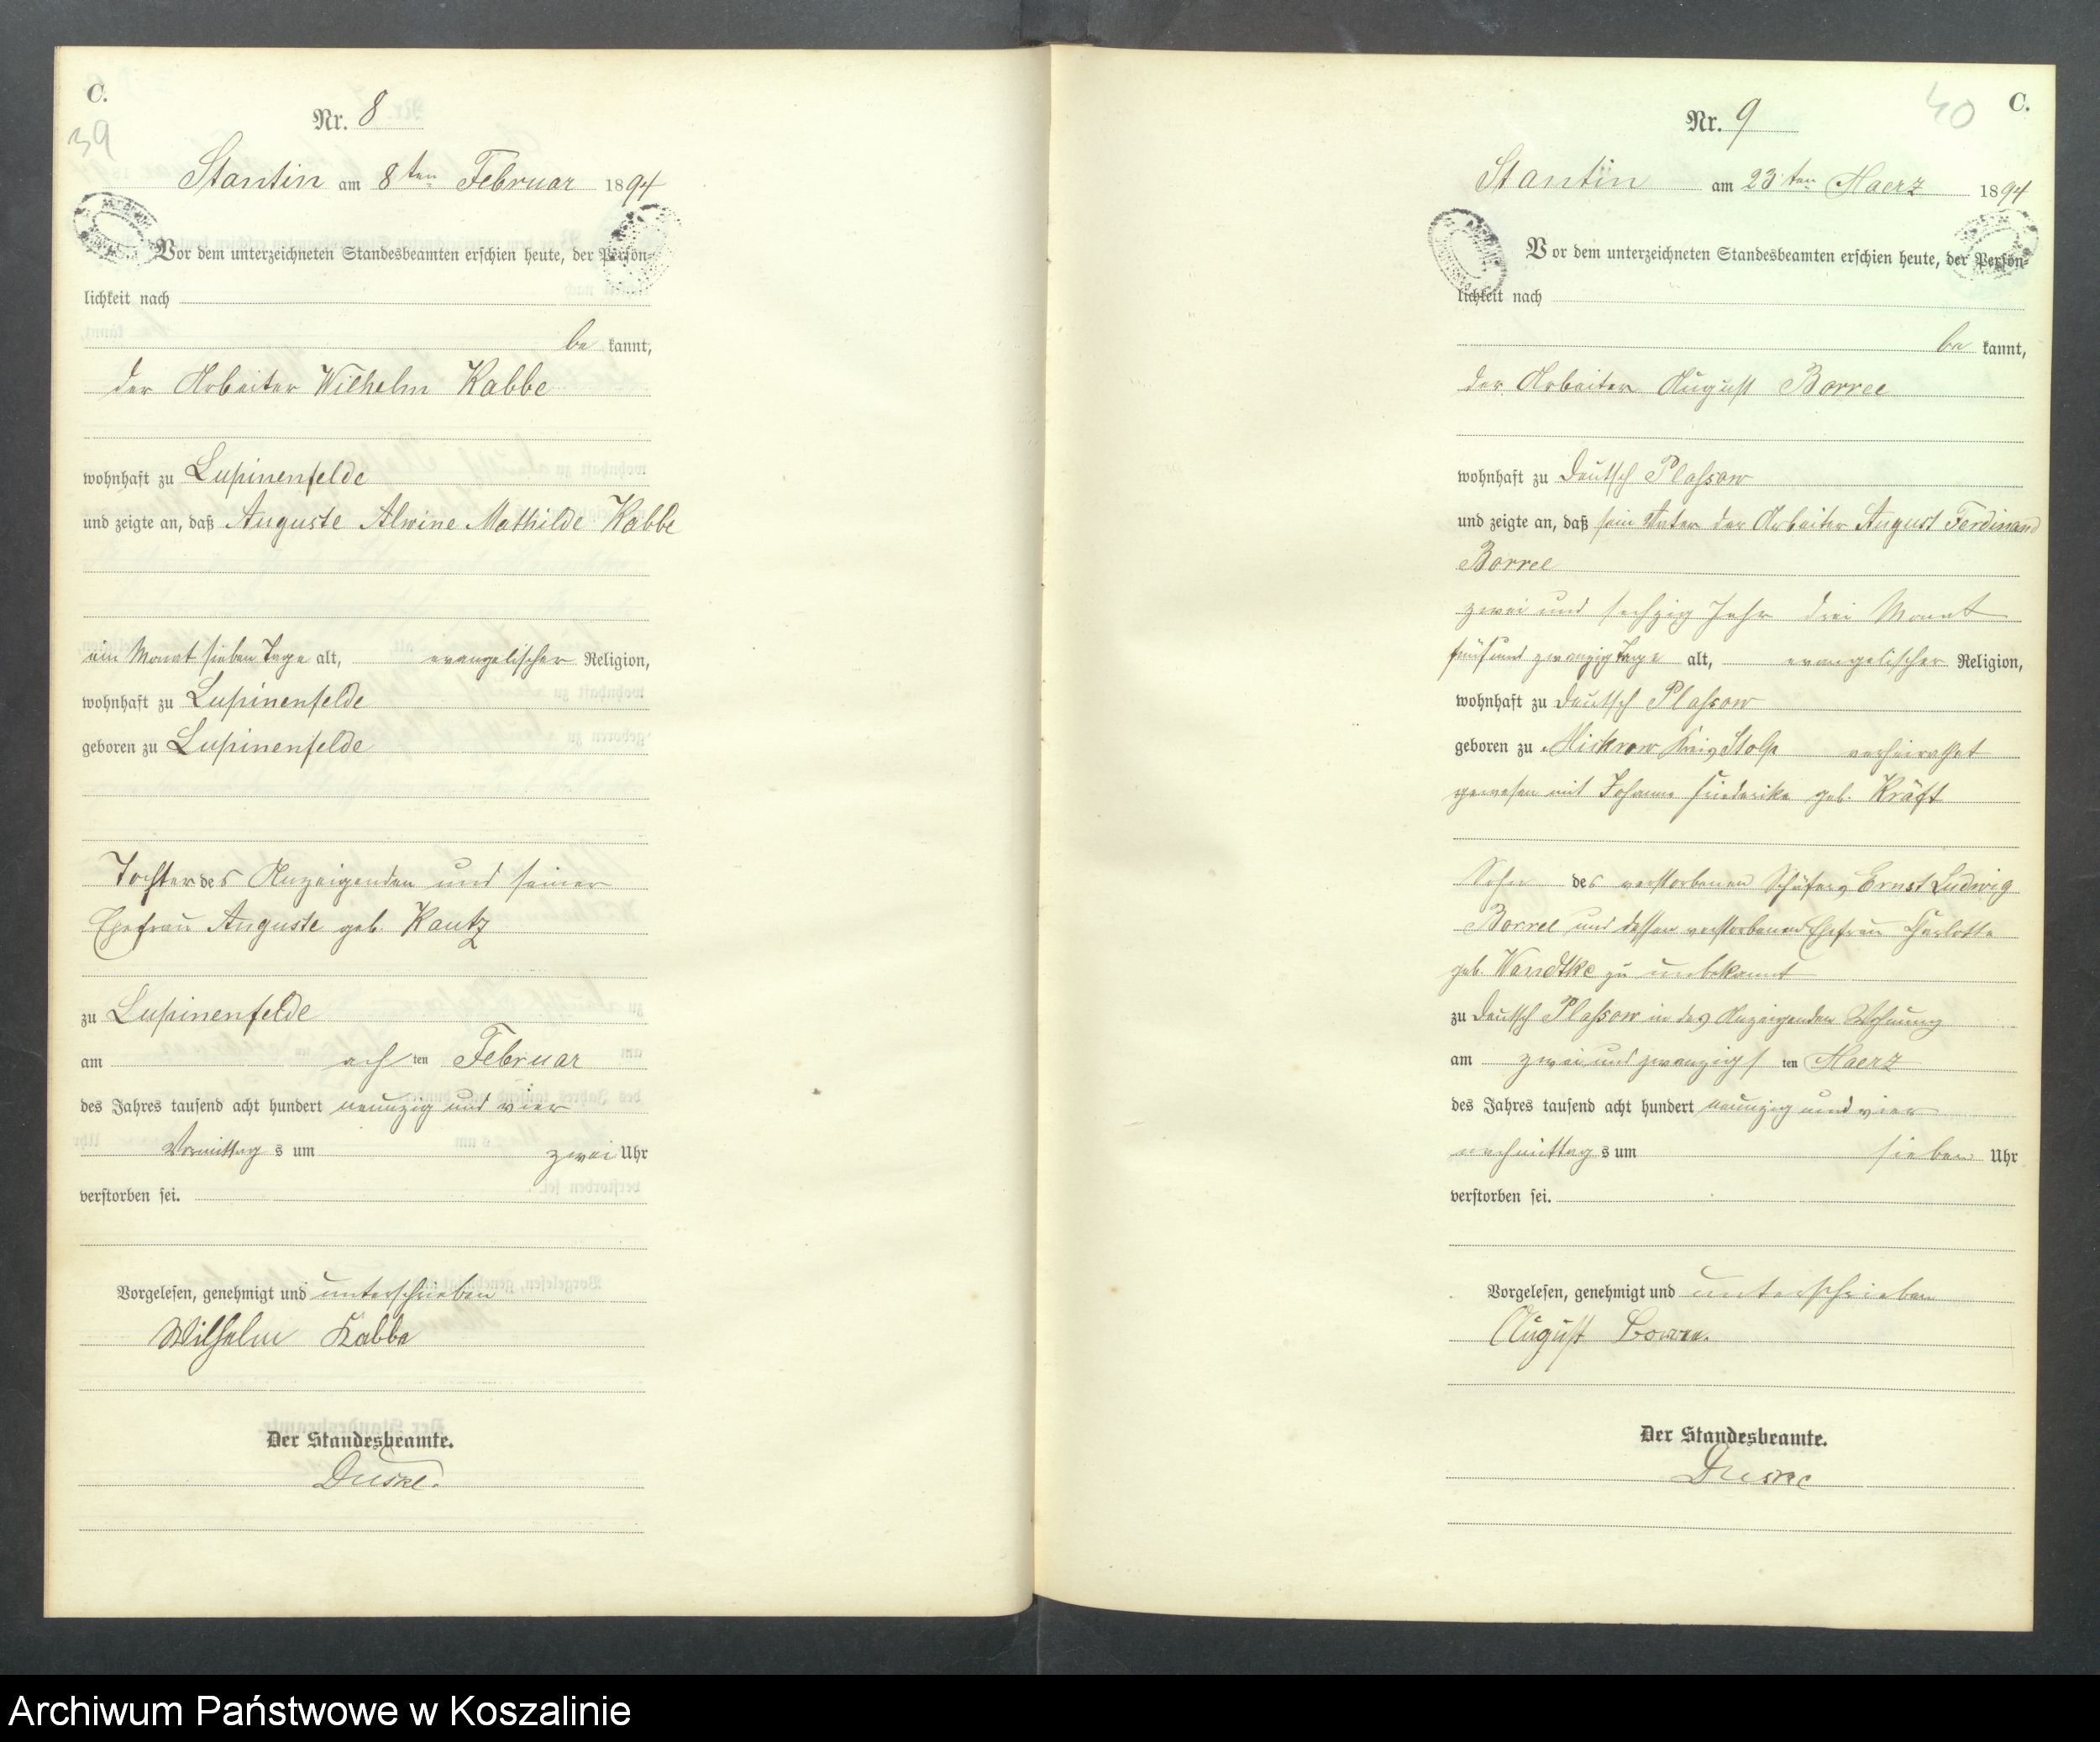 C.
39
Nr. 8
Stantin am 8ten Februar 1894
Vor dem unterzeichneten Standesbeamten erschien heute, der Persön-
lichkeit nach
be kannt,
der Arbeiter Wilhelm Kabbe
wohnhaft zu Lupinenfelde
und zeigte an, daß Auguste Alwine Mathilde Kabbe
ein Monat sieben Tage alt, evangelischer Religion,
wohnhaft zu Lupinenfelde
geboren zu Lupinenfelde
Tochter des Anzeigenden und seiner
Ehefrau Auguste geb. Kautz
zu Lupinenfelde
am acht ten Februar
des Jahres tausend acht hundert neunzig und vier
Vormittag s um zwei Uhr
verstorben sei.
Vorgelesen, genehmigt und unterschrieben
Wilhelm Kabbe
Der Standesbeamte.
40
C.
Nr. 9
Stantin am 23ten Maerz 1894
Vor dem unterzeichneten Standesbeamten erschien heute, der Persön-
lichkeit nach
be kannt,
der Arbeiter August Borree
wohnhaft zu Deutsch Plassow
und zeigte an, daß sein Vater der Arbeiter August Ferdinand
Borree
zwei und sechzig Jahr drei Monat
fünf und zwanzig Tage alt, evangelischer Religion,
wohnhaft zu Deutsch Plassow
geboren zu Mickrow Kreis Stolp verheirathet
gewesen mit Johanne Friederike geb. Kräft
Sohn des verstorbenen Schäfers Ernst Ludwig
Borree und dessen verstorbenen Ehefrau Charlotte
geb. Wandtke zu unbekannt
zu Deutsch Plassow in des Anzeigenden Wohnung
am zwei und zwanzigs ten Maerz
des Jahres tausend acht hundert neunzig und vier
nachmittag s um sieben Uhr
verstorben sei.
Vorgelesen, genehmigt und unterschrieben
August Borree.
Der Standesbeamte.
Archiwum Państwowe w Koszalinie